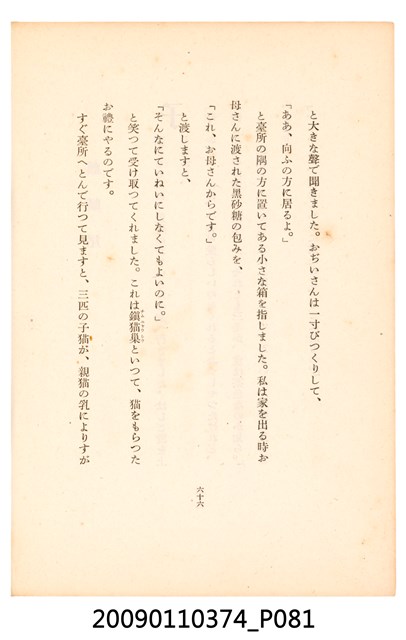 と大きな聲で聞きました。おぢいさんは一寸びつくりして、
「ああ、向ふの方に居るよ。」
と臺所の隅の方に置いてある小さな箱を指しました。私は家を出る時お
母さんに渡された黒砂糖の包みを、
「これ、お母さんからです。」
と渡しますと、
「そんなにていねいにしなくてもよいのに。」
と笑つて受け取つてくれました。これは鎭猫巣といつて、猫をもらつた
お禮にやるのです。
すぐ臺所へとんで行つて見ますと、三匹の子猫が、親猫の乳によりすが
六十六
20090110374_P081